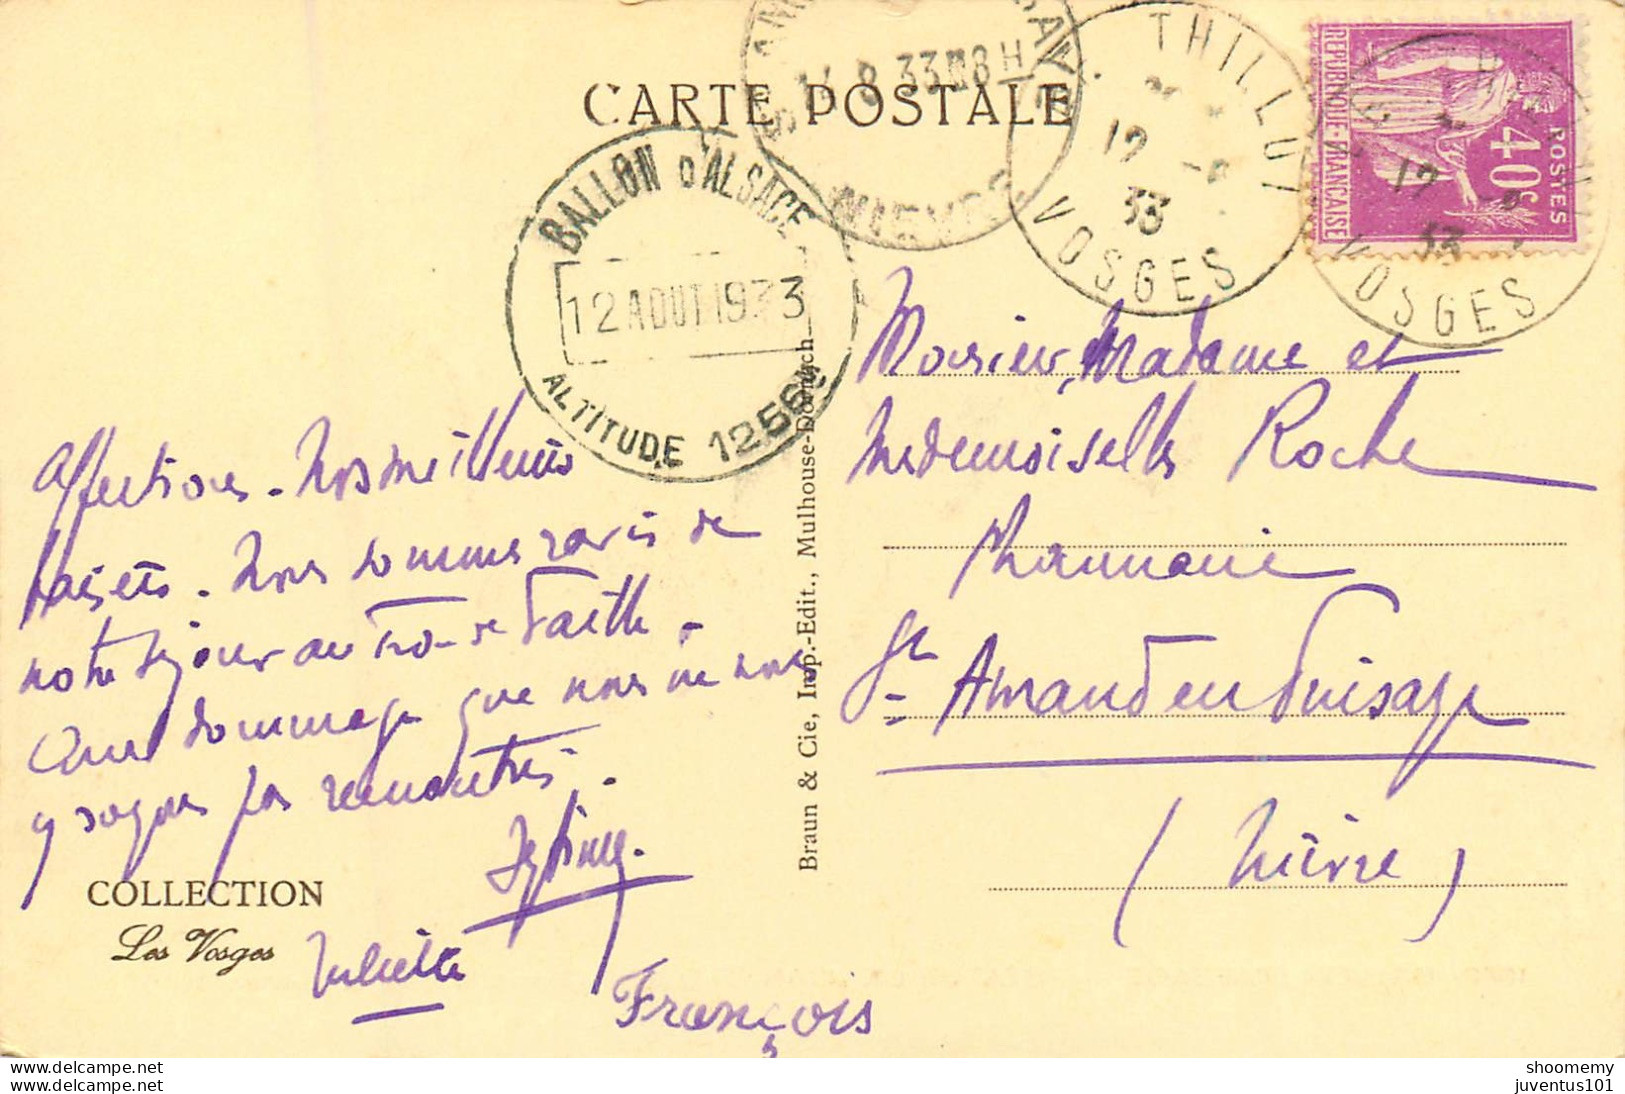 CARTE POSTALE
BALLON D'ALSACE
12 AOUT 1933
ALTITUDE 1256
14 8 33 18 H
NIEVRE
THILLOT
12 -8
33
VOSGES
12
33
VOSGES
REPUBLIQUE FRANÇAISE
POSTES
40c
Affections. Nos meilleurs
baisers. Nous sommes ravis de
notre séjour au
que dommage que nous ne nous
y soyons pas rencontrés.
Juliette
François
COLLECTION
Les Vosges
Braun & Cie, Imp.-Edit., Mulhouse-Dornach
Monsieur, Madame et
Mademoiselle Roche
Pharmacie
St Amand en Puisaye
(Nièvre)
shoomemy
juventus101